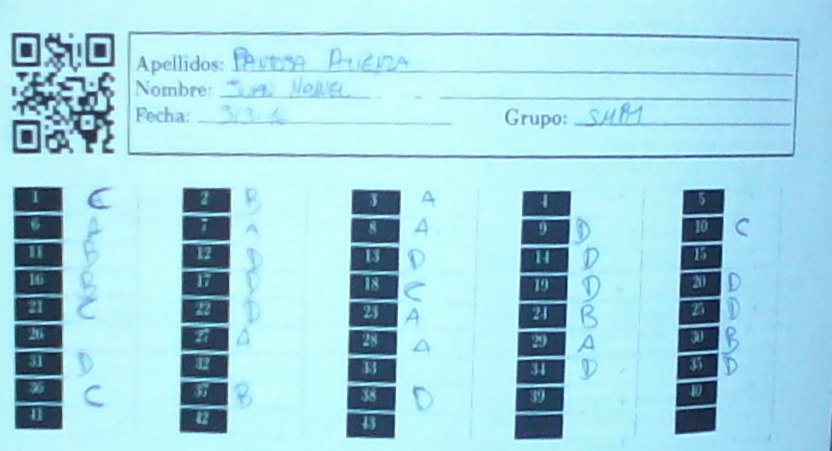 Apellidos: PANTOJA ATIENZA
Nombre: JUAN MANUEL
Fecha: Grupo: SMR1
1 C 2 B 3 A 4 5
6 A 7 A 8 A 9 D 10 C
11 D 12 D 13 D 14 D 15
16 B 17 D 18 C 19 D 20 D
21 C 22 D 23 A 24 B 25 D
26 27 A 28 A 29 A 30 B
31 D 32 33 34 D 35 D
36 C 37 B 38 D 39 40
41 42 43